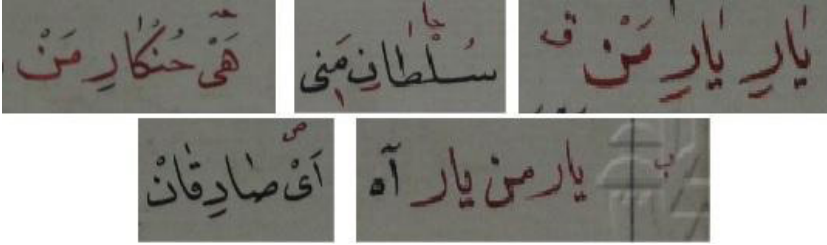 يَارِ يَارِ مَنْ ق سُلْطَانِ مَنِی هَیْ حُنْكَارِ مَنْ
ب يار من يار آه اَیْ صَادِقَانْ